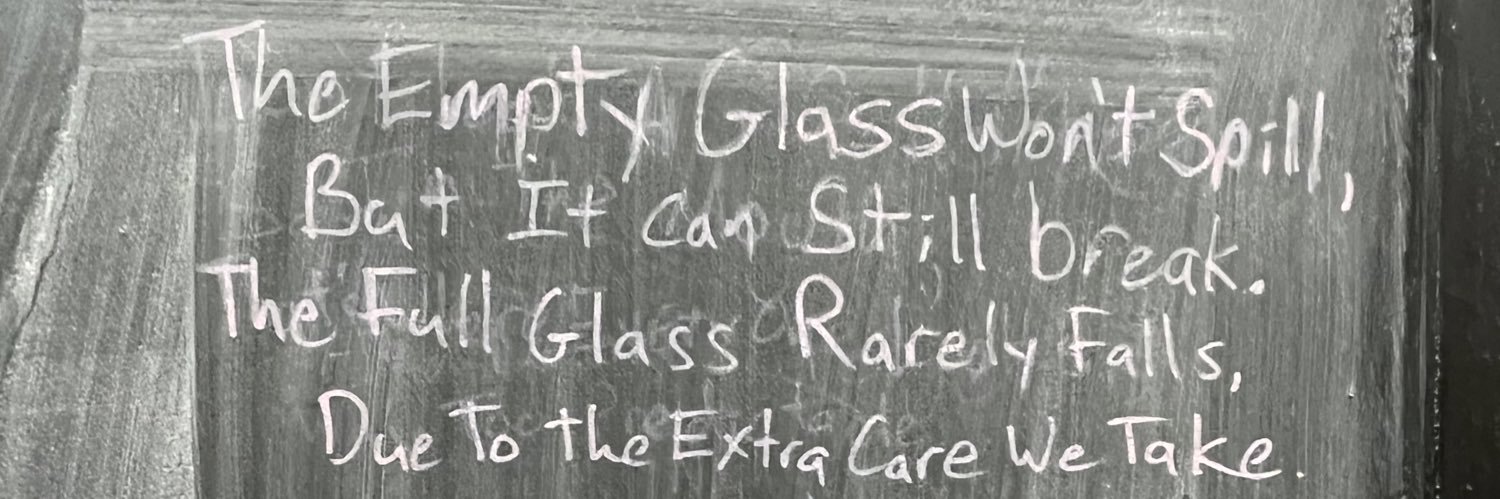 The Empty Glass Won't Spill,
But It can Still break.
The Full Glass Rarely Falls,
Due To the Extra Care We Take.